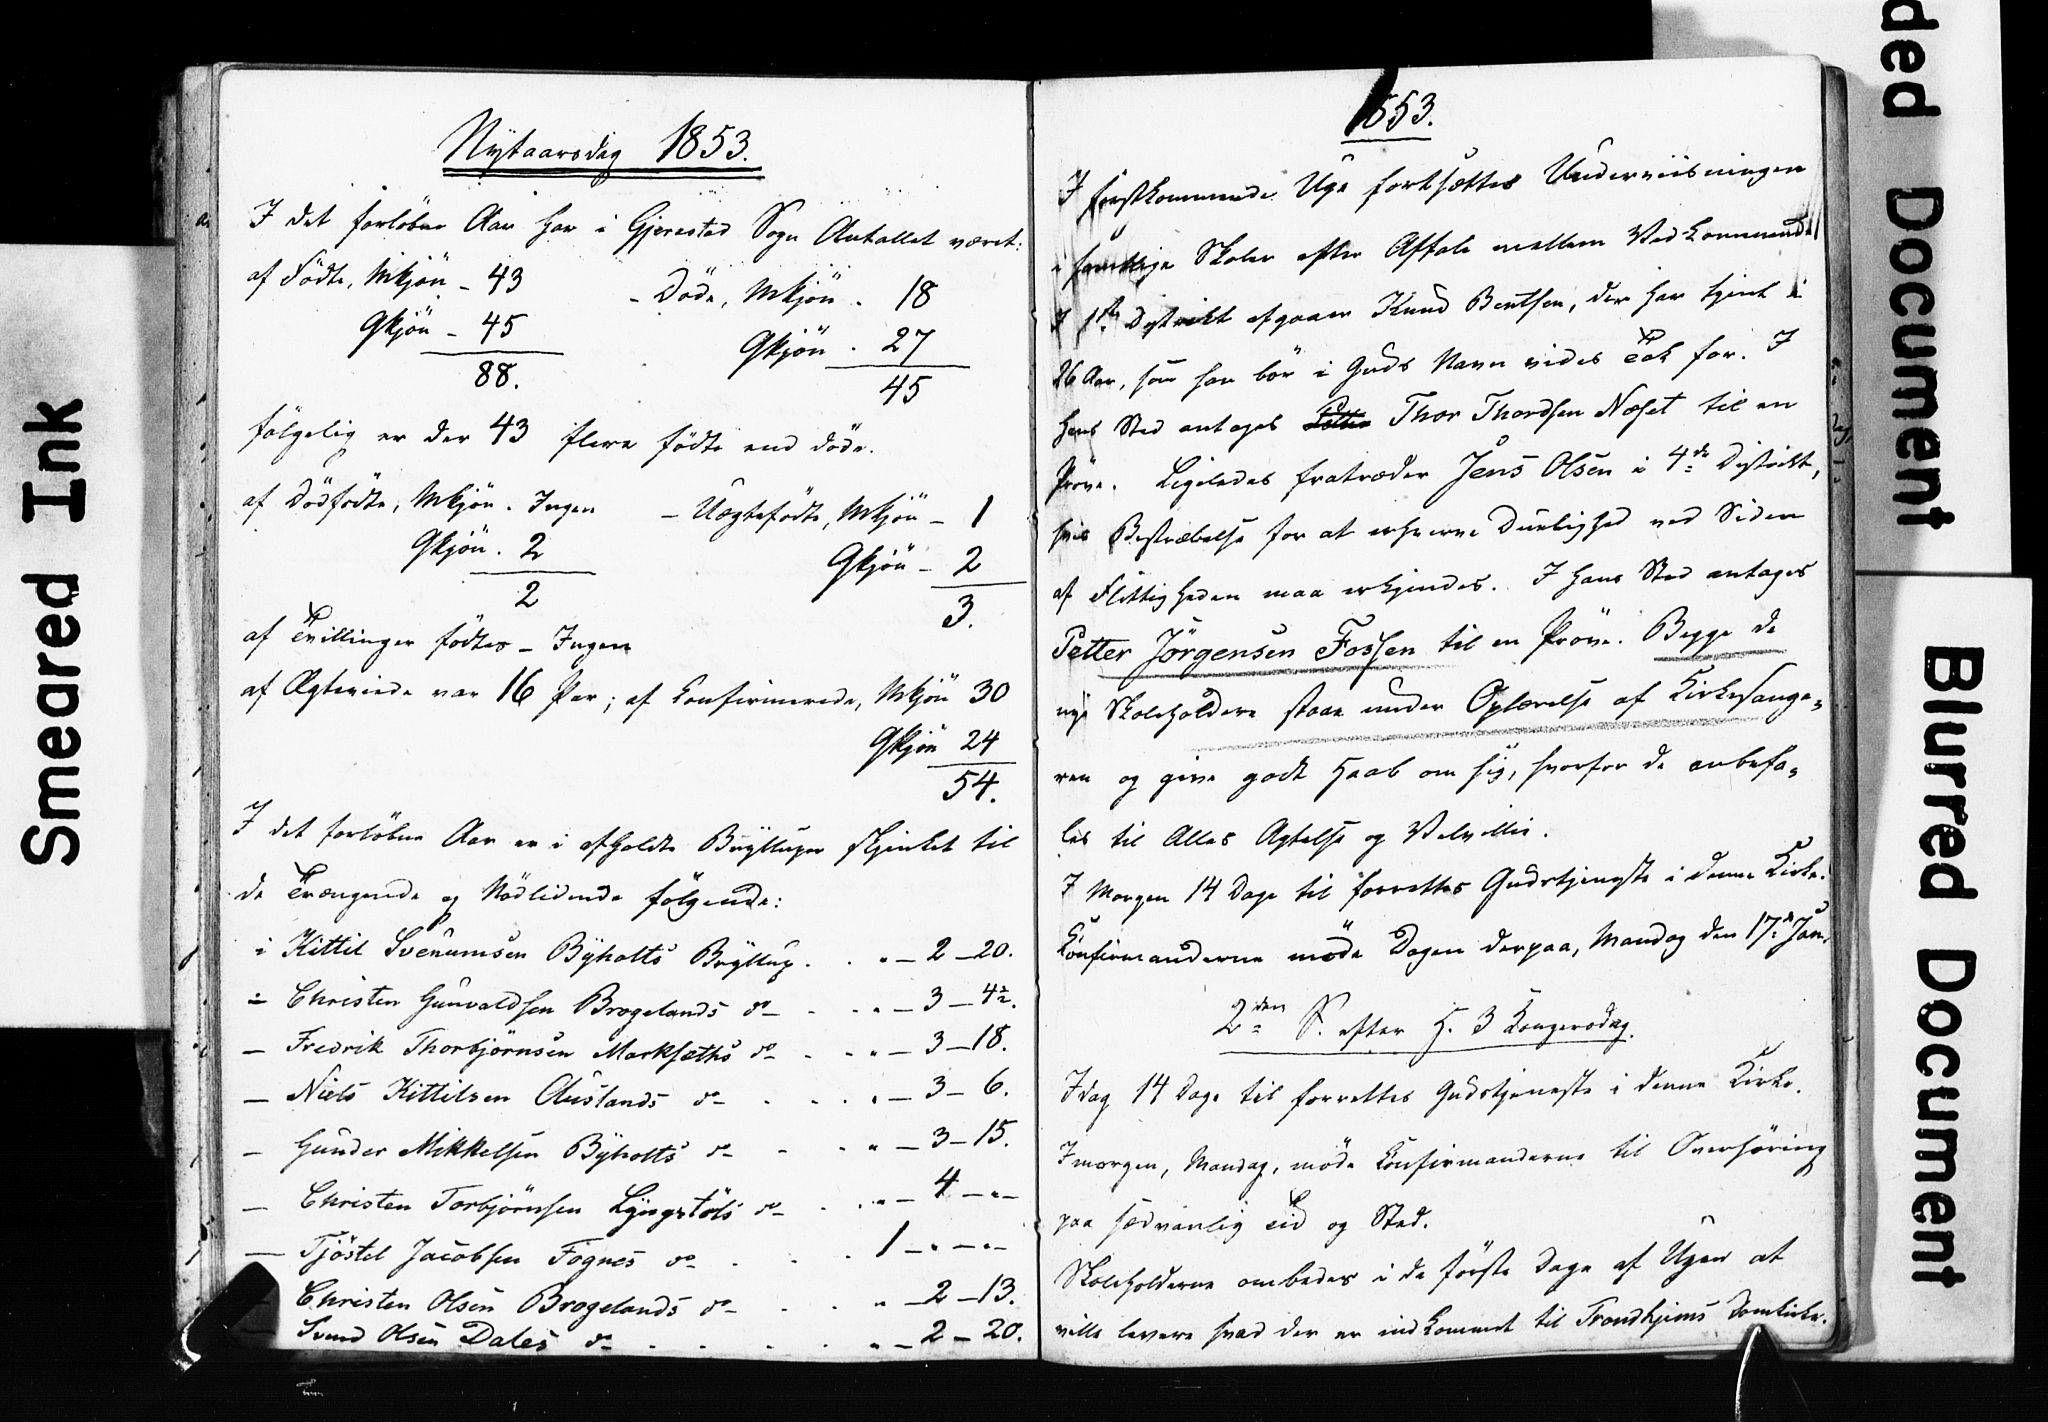 Nytaarsdag 1853.
I det forløbne Aar har i Gjerestad Sogn Antallet været:
af Födte, Mkjön - 43 - Döde, Mkjön . 18
Gkjön - 45 Gkjön . 27
88. 45
fölgelig er der 43 flere födte end döde.
af Dödfödte, Mkjön . Ingen - Uægtefödte, Mkjön - 1
Gkjön . 2 Gkjön - 2
2 3.
af Tvillinger födtes - Ingen
af Ægteviede var 16 Par; af Confirmerede, Mkjön 30
Gkjön 24
54.
I det forlöbne Aar er i afholdte Bryllupper skjenket til
de Trængende og Nödlidende fölgende:
i Kittil Svenumsen Byholts Bryllup . . " - 2 - 20.
i Christen Gunvaldsen Brogelands do - . . " - 3 - 4½.
- Fredrik Thorbjörnsen Marksæths do - . . " - 3 - 18.
- Niels Kittilsen Auslands do - . . . " - 3 - 6.
- Gunder Mikkelsen Byholts do - . . " - 3 - 15.
- Christen Torbjörnsen Lyngstöls do - . . " - 4 - " -
- Tjöstel Jacobsen Fognes do - . . . 1 - " - " -
Christen Olsen Brogelands do - . . " - 2 - 13.
Svend Olsen Dales do - . . . . " - 2 - 20.
1853.
I förstkommende Uge fortsættes Underviisningen
i samtlige Skoler efter Aftale mellem Vedkommende
I 1ste Distrikt afgaaer Knud Bentsen, der har tjent i
26 Aar, som han bör i Guds Navn vides Tak for. I
hans Sted antages Petter Thor Thordsen Næset til en
Pröve. Ligeledes fratræder Jens Olsen i 4de Distrikt,
hvis Bestræbelse for at erhverve Duelighed ved Siden
af Flittigheden maa erkjendes. I hans Sted antages
Petter Jörgensen Fossen til en Pröve. Begge de
nye Skoleholdere staae under Oplærelse af Kirkesange-
ren og give godt Haab om sig, hvorfor de anbefa-
les til Alles Agtelse og Velvillie.
I Morgen 14 Dage til forrettes Gudstjeneste i denne Kirke.
Confirmanderne möde Dagen derpaa, Mandag den 17de Jan.
2den S. efter H. 3 Kongersdag.
Idag 14 Dage til forrettes Gudstjeneste i denne Kirke.
Imorgen, Mandag, möde Confirmanderne til Overhöring
paa sædvanlig Tid og Sted.
Skoleholderne ombedes i de förste Dage af Ugen at
ville levere hvad der er indkommet til Trondhjems Domkirke.
Smeared Ink
ded Document
Blurred Document